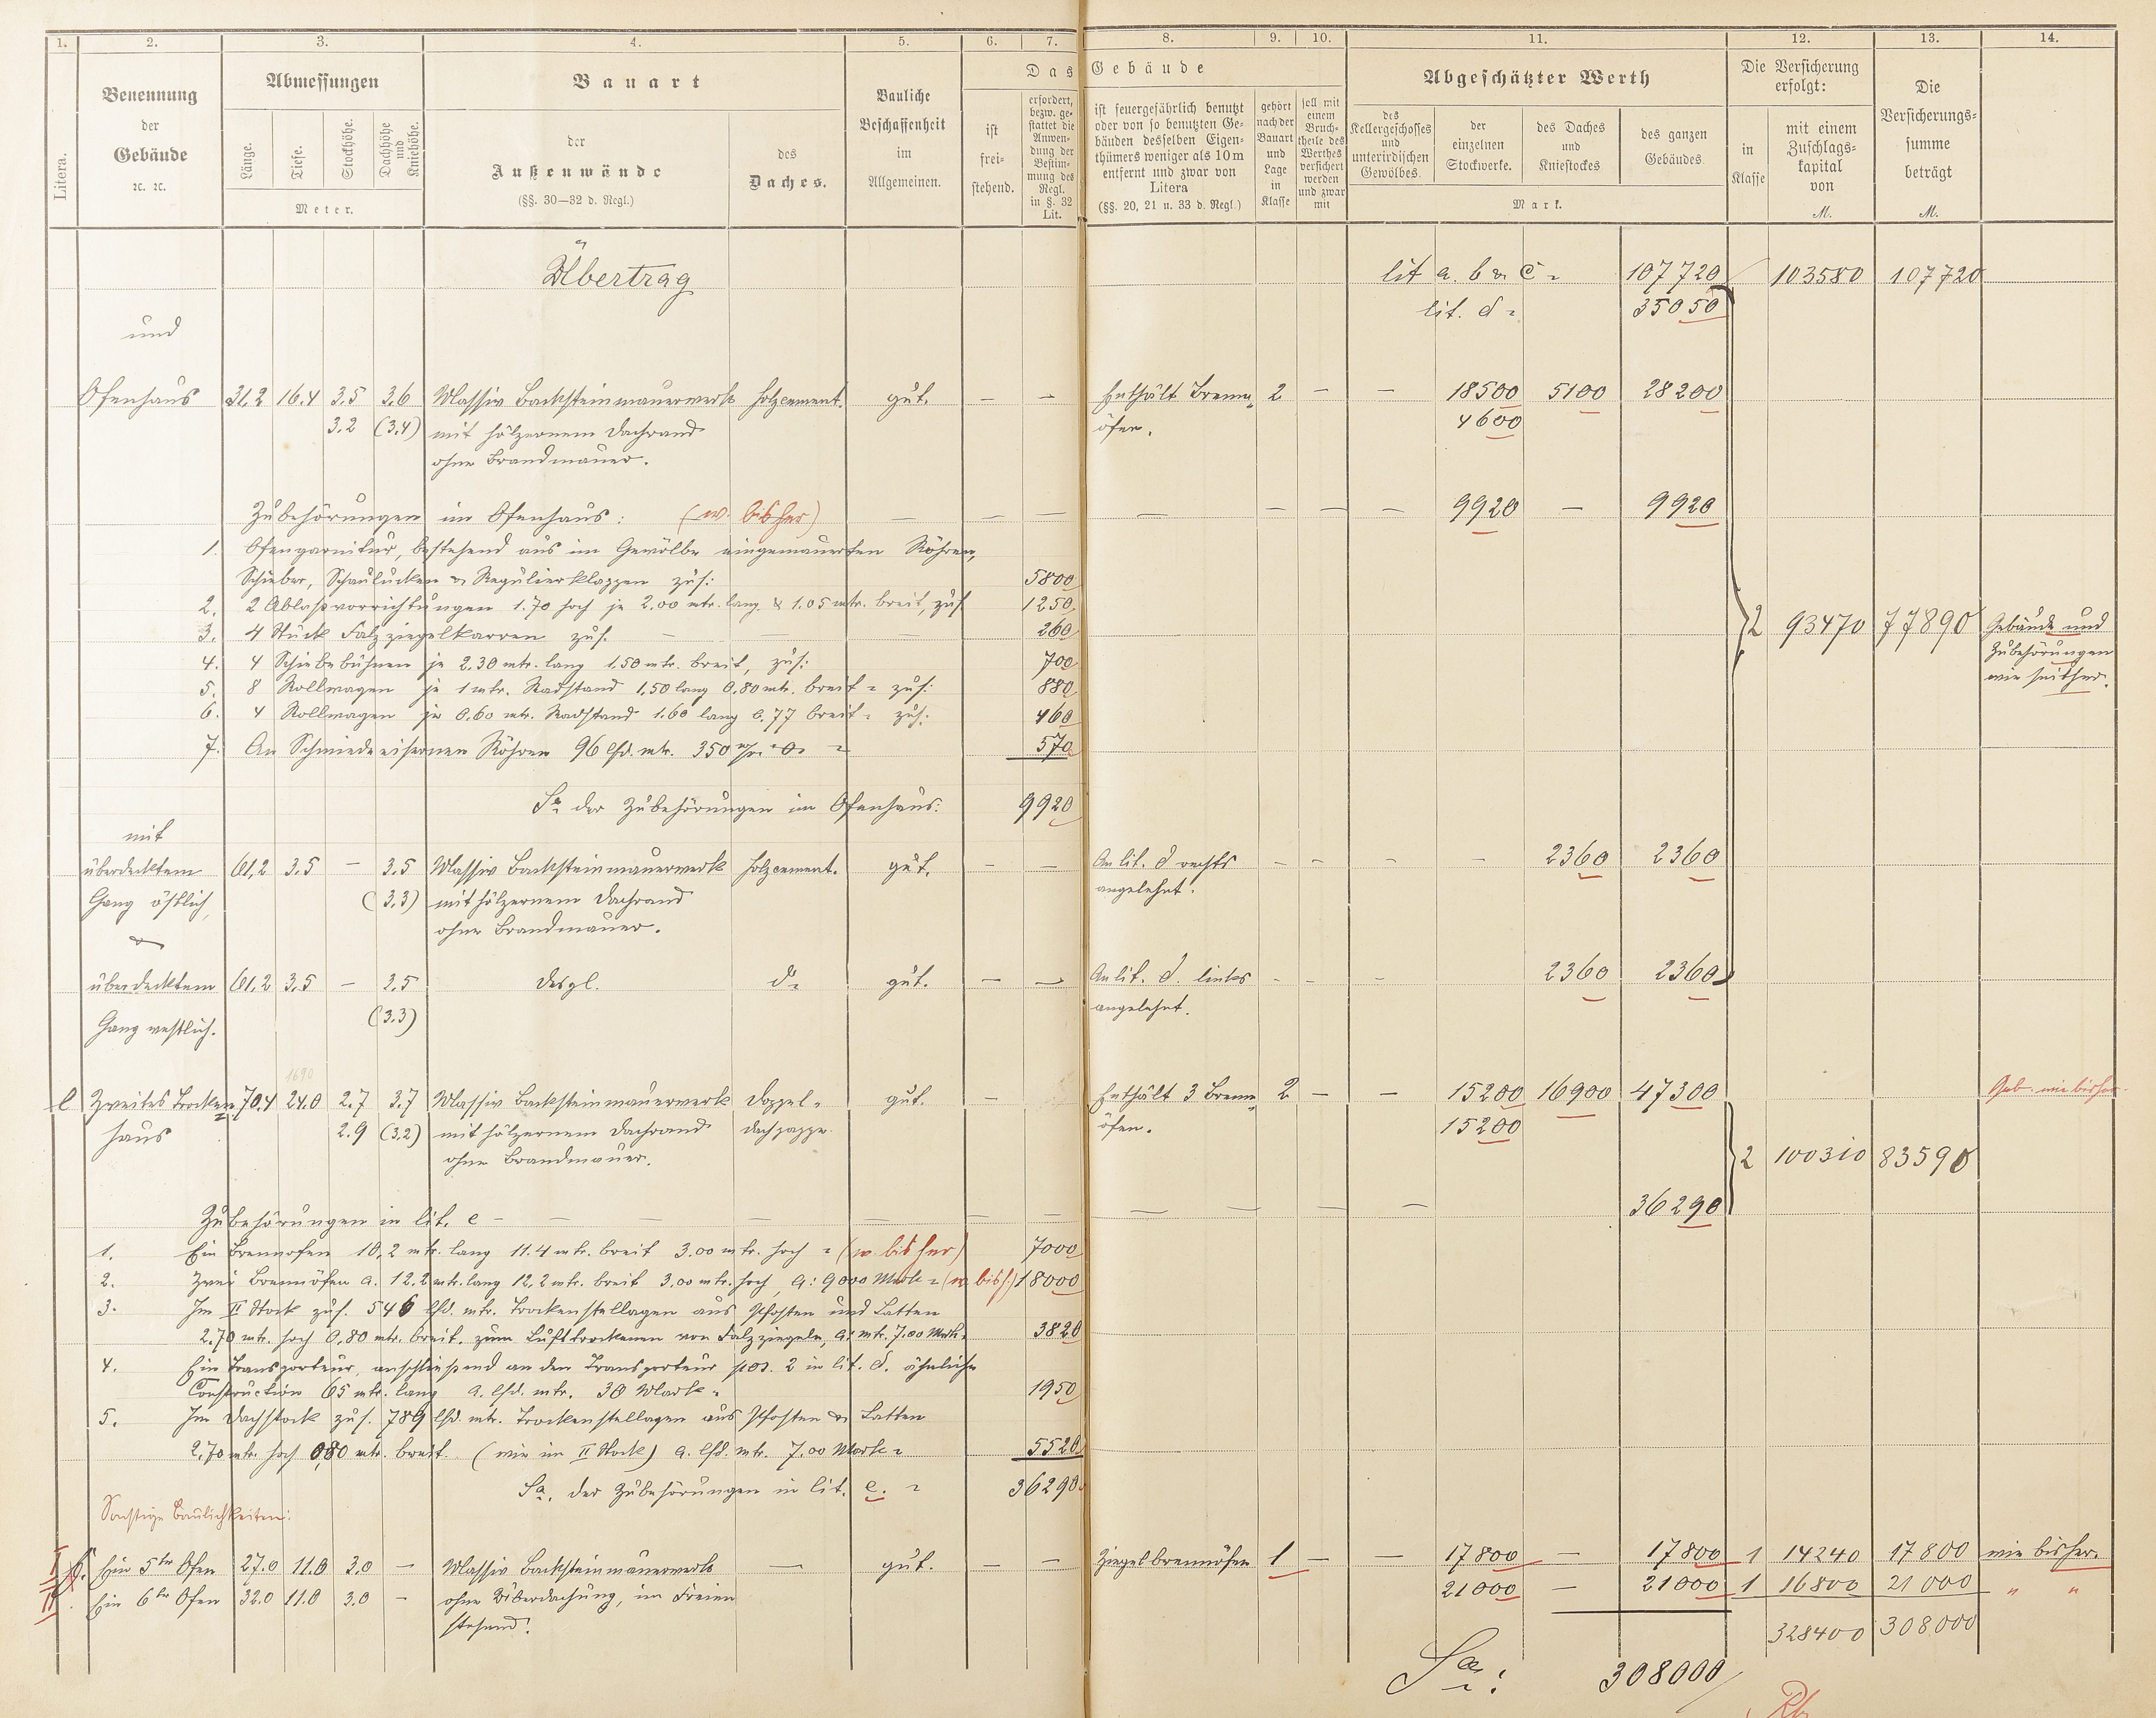 1. 2. 3. 4. 5. 6. 7. 8. 9. 10. 11. 12. 13. 14.
Litera.
Benennung
der
Gebäude
ꝛc. ꝛc.
Abmessungen
Länge. Tiefe. Stockhöhe. Dachhöhe und Kniehöhe.
Meter.
Bauart
der
Außenwände
(§§. 30—32 d. Regl.)
des
Daches.
Bauliche
Beschaffenheit
im
Allgemeinen.
Das Gebäude
ist
frei-
stehend.
erfordert,
bezw. ge-
stattet die
Anwen-
dung der
Bestim-
mung des
Regl.
in §. 32
Lit.
ist feuergefährlich benutzt
oder von so benutzten Ge-
bäuden desselben Eigen-
thümers weniger als 10 m
entfernt und zwar von
Litera
(§§. 20, 21 u. 33 d. Regl.)
gehört
nach der
Bauart
und
Lage
in
Klasse
soll mit
einem
Bruch-
theile des
Werthes
versichert
werden
und zwar
mit
Abgeschätzter Werth
des
Kellergeschosses
und
unterirdischen
Gewölbes.
der
einzelnen
Stockwerke.
des Daches
und
Kniestockes
des ganzen
Gebäudes.
Mark.
Die Versicherung
erfolgt:
in
Klasse
mit einem
Zuschlags-
kapital
von
M.
Die
Versicherungs-
summe
beträgt
M.
Übertrag lit a. b & c = 107720 103580 107720
lit. d = 35050
und
Ofenhaus 31,2 16.4 3.5 3.6 Massiv Backsteinmauerwerk Holzcement. gut. – – Enthält Brenn- 2 – – 18500 5100 28200
3.2 (3.4) mit hölzernem Dachrand öfen. 4600
ohne Brandmauer.
Zubehörungen im Ofenhaus: (w. bisher) – – – – – – – 9920 – 9920
1. Ofengarnitur, bestehend aus im Gewölbe eingemauerten Röhren,
Schieber, Schaulucken & Regulierklappen zus: 5800
2. 2 Ablaßvorrichtungen 1.70 hoch je 2.00 mtr. lang & 1.05 mtr. breit, zus 1250
3. 4 Stück Falzziegelkarren zus. – – – 260
2 93470 77890 Gebäude und
Zubehörungen
wie seither.
4. 4 Schiebebühnen je 2.30 mtr. lang 1.50 mtr. breit, zus: 700
5. 8 Rollwagen je 1 mtr. Radstand 1,50 lang 0.80 mtr. breit = zus: 880
6. 4 Rollwagen je 0.60 mtr. Radstand 1.60 lang 0.77 breit = zus: 460
7. An Schmiedeeisernen Röhren 96 lfd. mtr. 350 = 570
Sa der Zubehörungen im Ofenhaus: 9920
mit
überdecktem 61,2 3.5 – 3.5 Massiv Backsteinmauerwerk Holzcement. gut. – – An lit. d rechts – – – – 2360 2360
Gang östlich, (3.3) mit hölzernem Dachrand angelehnt.
ohne Brandmauer.
&
überdecktem 61.2 3.5 – 3.5 desgl. do gut. – – An lit. d. links – – – 2360 2360
Gang westlich. (3.3) angelehnt.
1690
e Zweites Trocken- 70,4 24.0 2.7 3.7 Massiv Backsteinmauerwerk Doppel- gut. – Enthält 3 Brenn- 2 – – 15200 16900 47300 Geb. wie bisher
haus 2.9 (3.2) mit hölzernem Dachrand dachpappe. öfen. 15200
ohne Brandmauer. 2 100310 83590
Zubehörungen in lit. e – – – – – – – – – – – 36290
1. Ein Brennofen 10,2 mtr. lang 11.4 mtr. breit 3.00 mtr. hoch = (w bisher) 7000
2. Zwei Brennöfen a. 12.2 mtr. lang 12,2 mtr. breit 3,00 mtr. hoch, a: 9000 Mark = (w. bish.) 18000
3. Im II Stock zus. 546 lfd. mtr. Trockenstellagen aus Pfosten und Latten
2.70 mtr. hoch 0,80 mtr. breit. zum Lufttrocknen von Falzziegeln, a. mtr. 7.00 Mark. 3820
4. Ein Transporteur, anschließend an den Transporteur pos. 2 in lit. d. ähnliche
Construction 65 mtr. lang a. lfd. mtr. 30 Mark = 1950
5. Im Dachstock zus. 789 lfd. mtr. Trockenstellagen aus Pfosten & Latten
2.70 mtr. hoch 0,80 mtr. breit. (wie im II Stock) a. lfd. mtr. 7.00 Mark = 5520
Sa. der Zubehörungen in lit. e. = 36290
Sonstige Baulichkeiten:
I f. Ein 5ter Ofen 27.0 11.0 3.0 – Massiv Backsteinmauerwerk – gut. – – Ziegelbrennöfen 1 – – 17800 – 17800 1 14240 17800 wie bisher.
II. Ein 6ter Ofen 32.0 11.0 3.0 – ohne Überdachung, im Freien 21000 – 21000 1 16800 21000 " "
stehend. 328400 308000
Sa: 308000